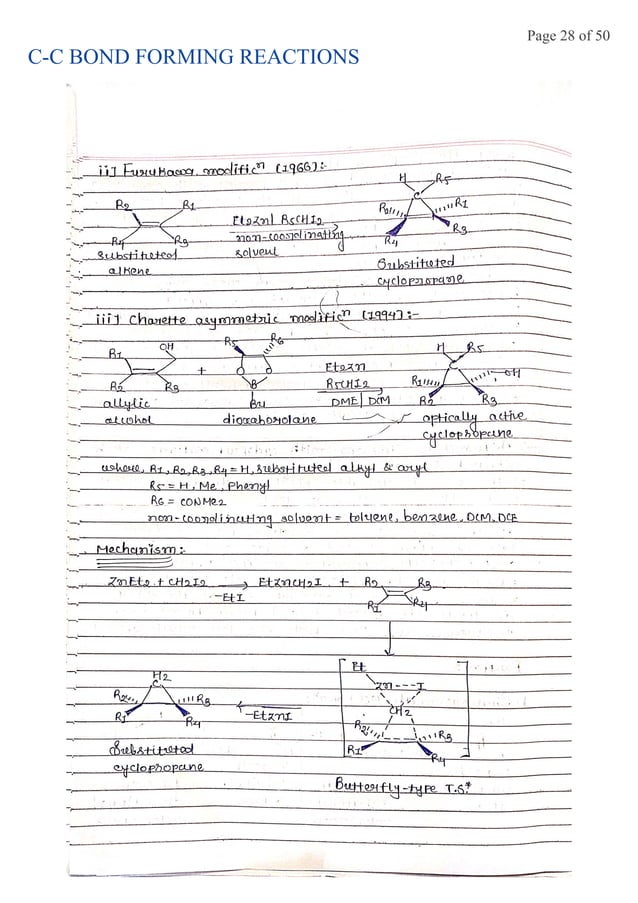 Page 28 of 50
C-C BOND FORMING REACTIONS
ii] Furukawa modificⁿ (1966):-
R2 R1 Et2Zn| R5CHI2 H R5
R4 R3 non-coordinating C
substituted solvent R2 R1
alkene R4 R3
Substituted
cyclopropane
iii] Charette asymmetric modificⁿ (1994):-
R1 OH R5 R6 Et2Zn H R5
R2 R3 + O O R5CHI2 C
B DME| DCM R1 OH
allylic Bu R2 R3
alcohol dioxaborolane optically active
cyclopropane
where, R1, R2, R3, R4 = H, substituted alkyl & aryl
R5 = H, Me, Phenyl
R6 = CONMe2
non-coordinating solvent = toluene, benzene, DCM, DCE
Mechanism:-
ZnEt2 + CH2I2 → EtZnCH2I + R2 R3
-EtI R1 R4
H2 Et
C Zn---I
R2 R3 CH2
R1 R4 -EtZnI R2 R3
Substituted R1 R4
cyclopropane
Butterfly-type T.S.‡